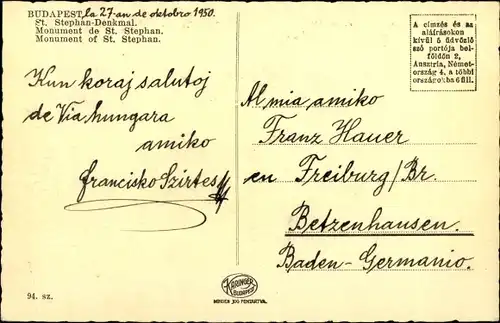 BUDAPEST, la 27-an de oktobro 1930.
St. Stephan-Denkmal.
Monument de St. Stephan.
Monument of St. Stephan.
A címzés és az
aláírásokon
kívül 5 üdvözlő
szó portója bel-
földön 2,
Ausztria, Német-
ország 4, a többi
országokba 6 fill.
Kun koraj salutoj
de Via hungara
amiko
Francisko Szirtes
Al mia amiko
Franz Hauer
en Freiburg/Br.
Betzenhausen.
Baden-Germanio.
KARINGER
BUDAPEST
MINDEN JOG FENTARTVA.
94. sz.